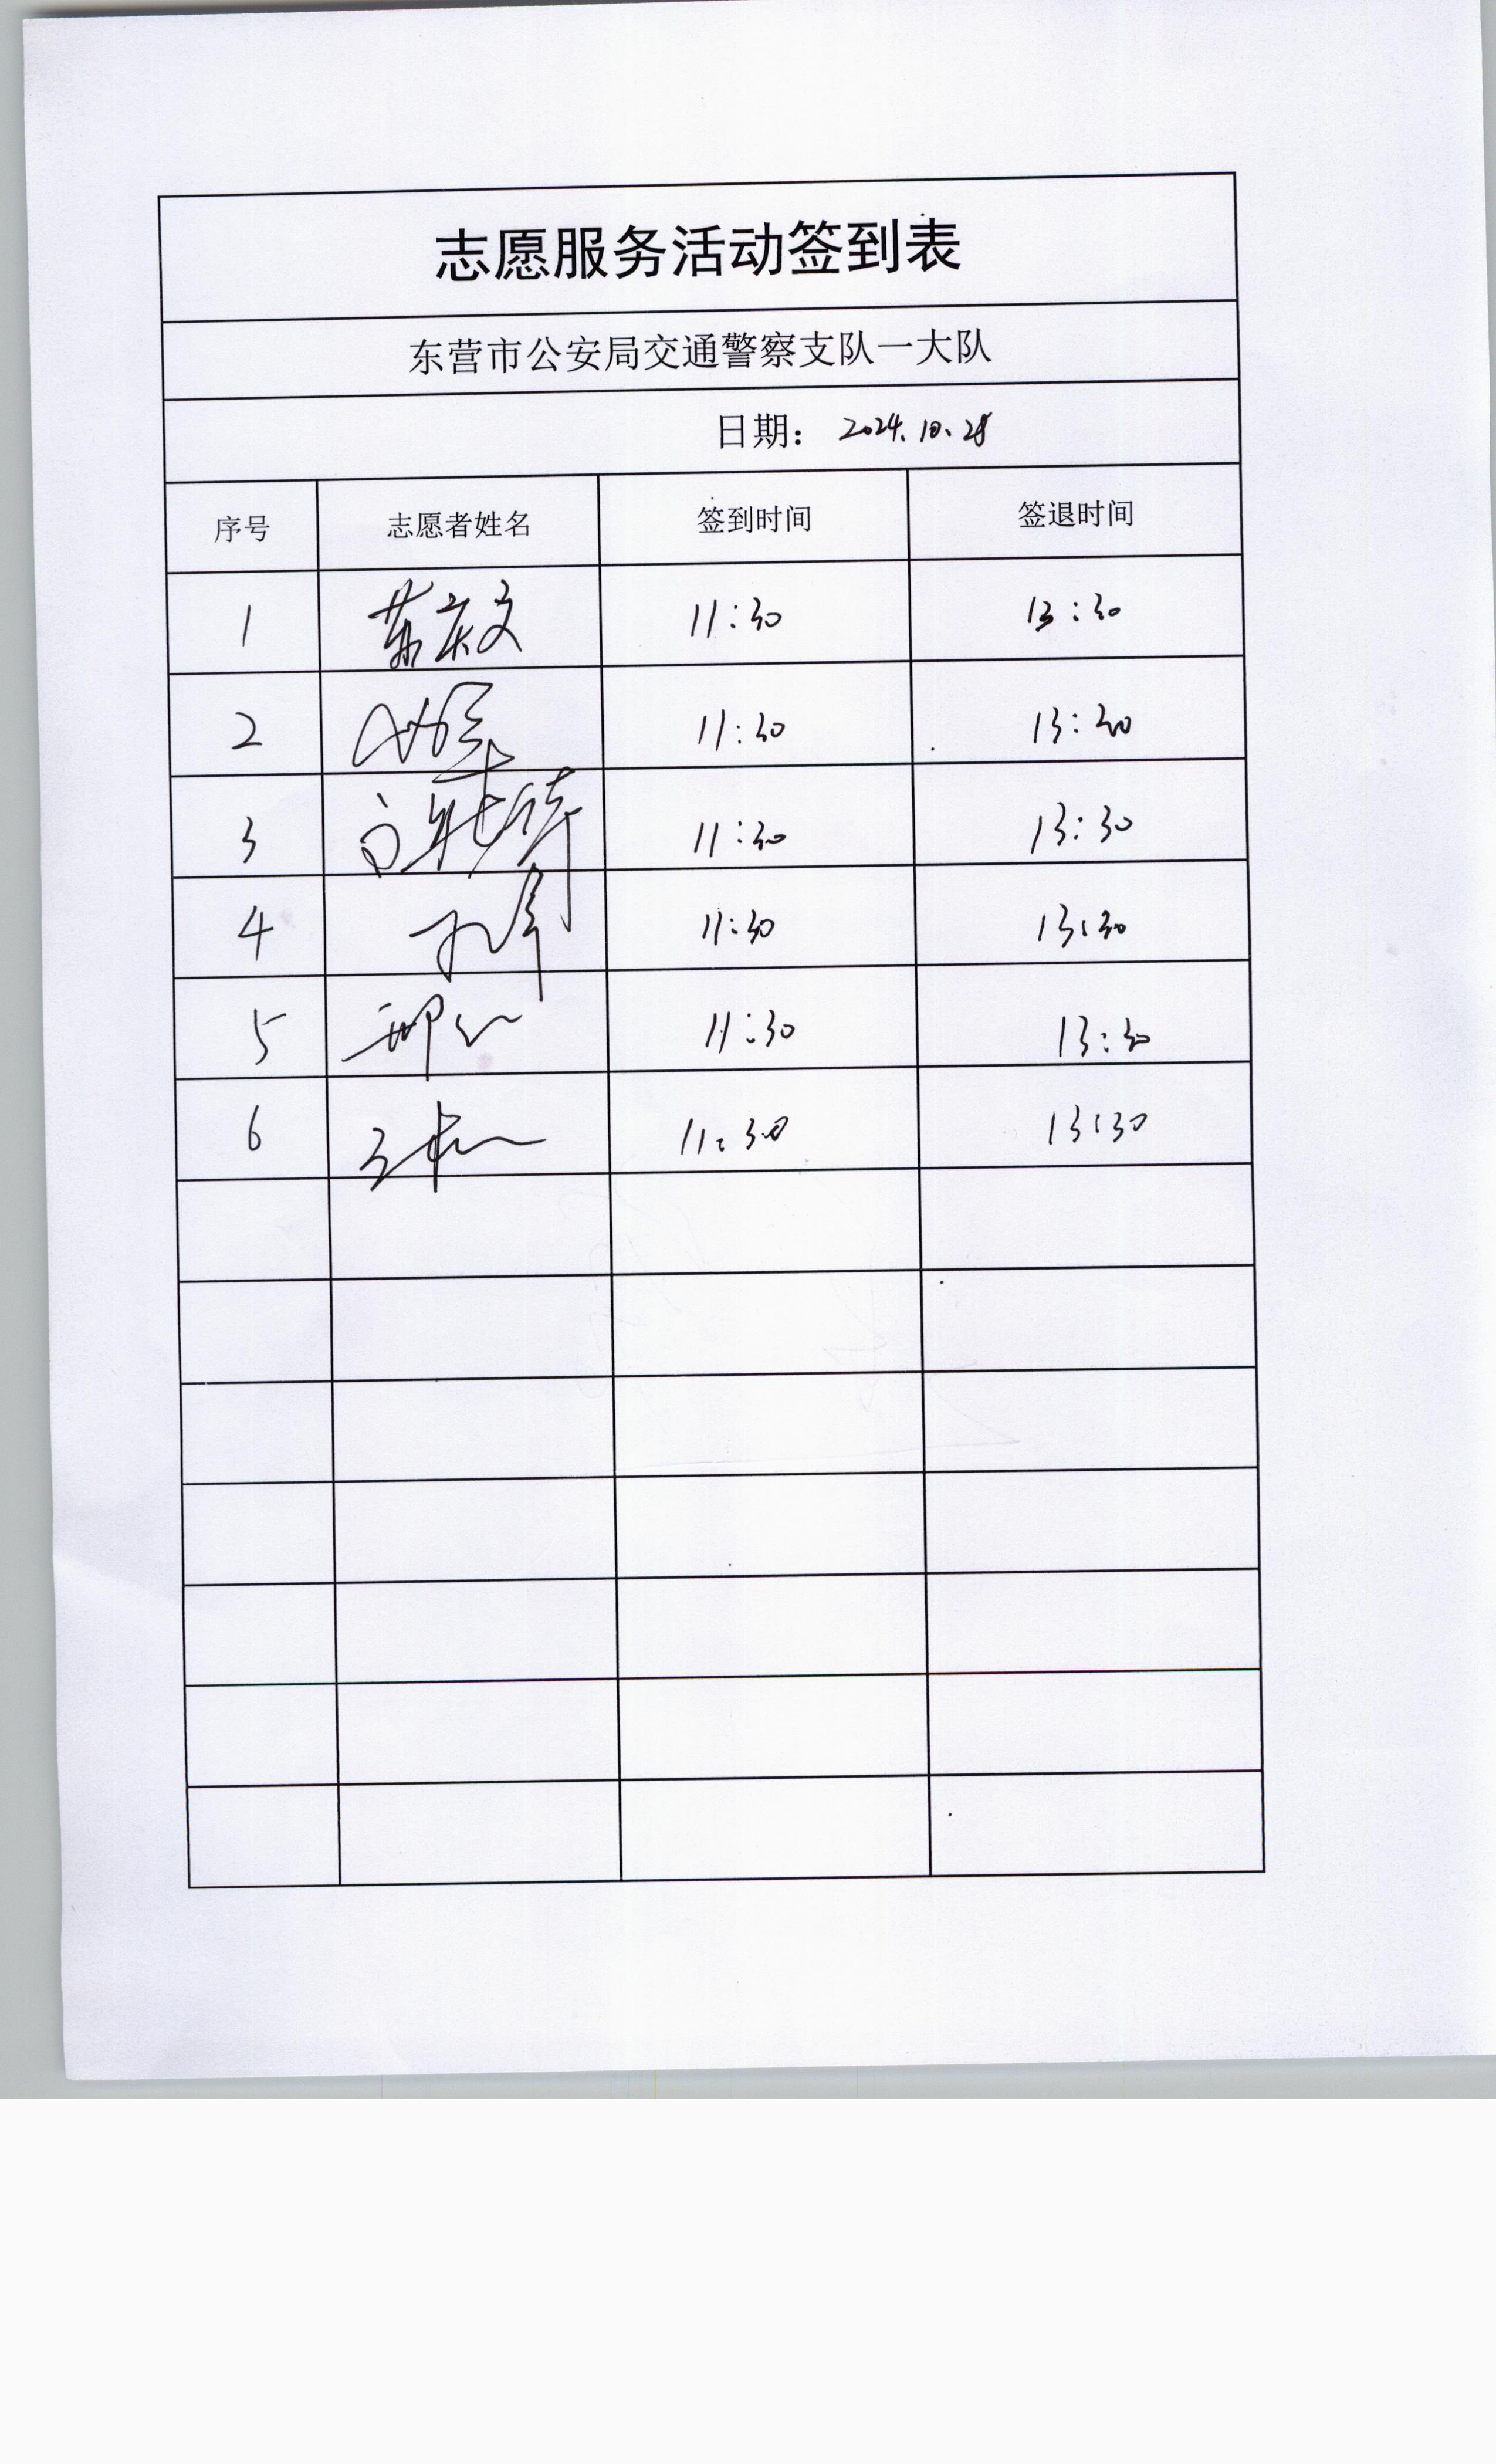 志愿服务活动签到表
东营市公安局交通警察支队一大队
日期: 2024.10.28
序号 志愿者姓名 签到时间 签退时间
1 11:30 13:30
2 11:30 13:30
3 11:30 13:30
4 11:30 13:30
5 11:30 13:30
6 11:30 13:30